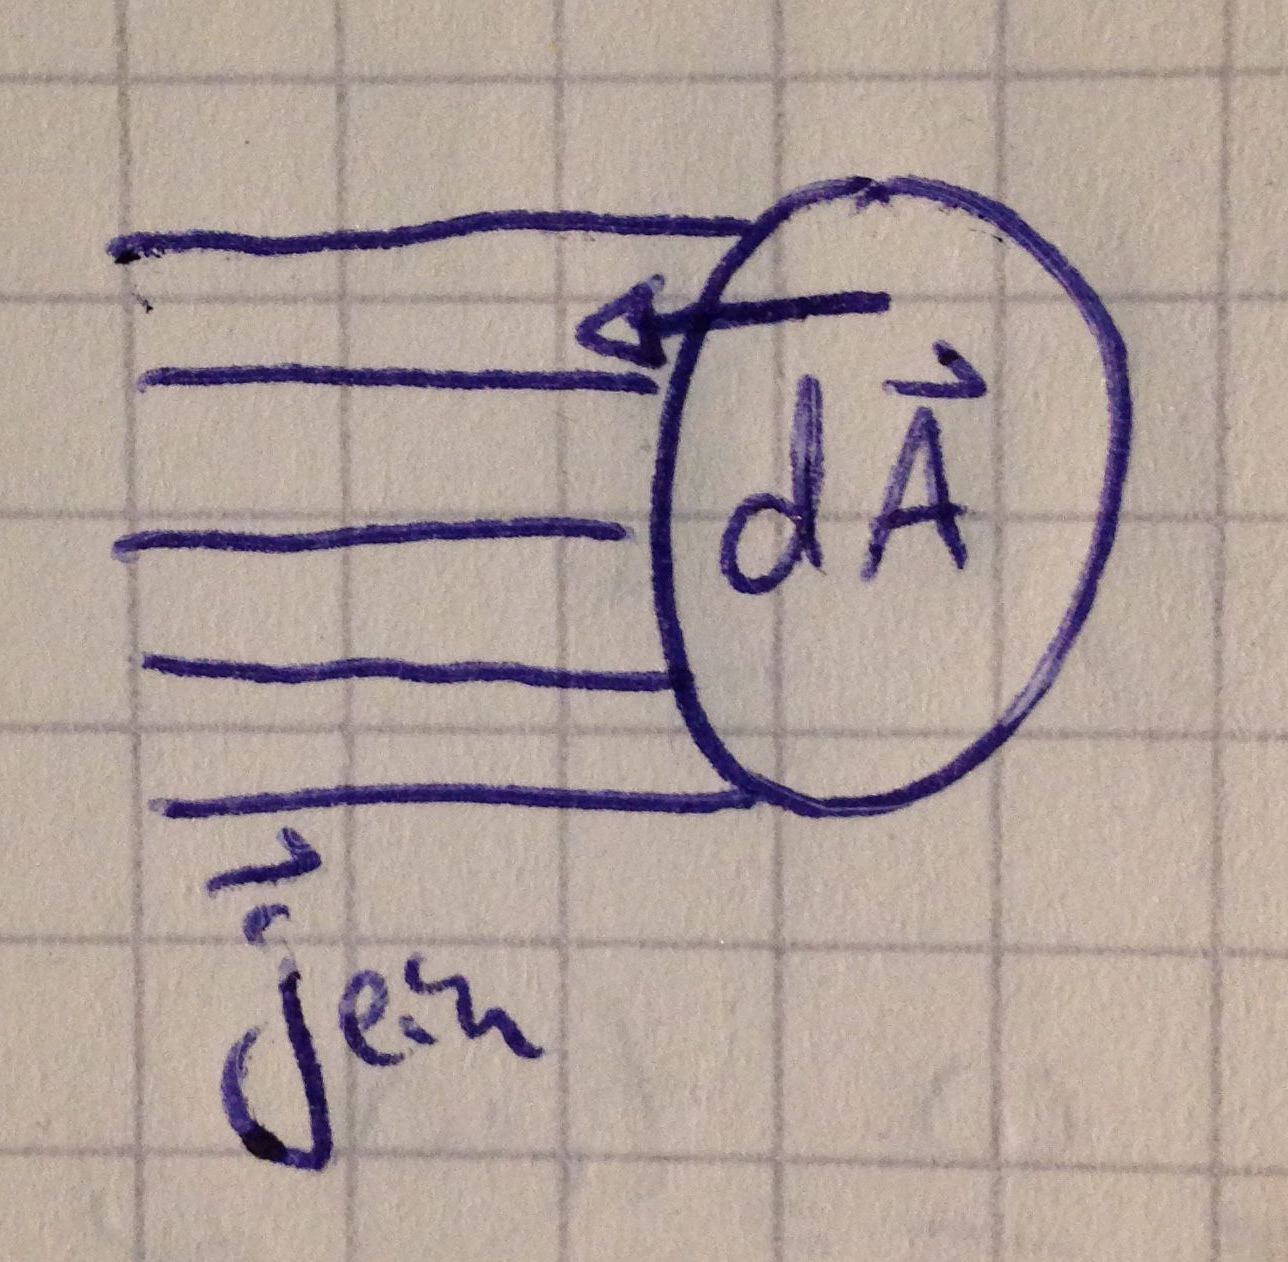 dA⃗
j⃗ein